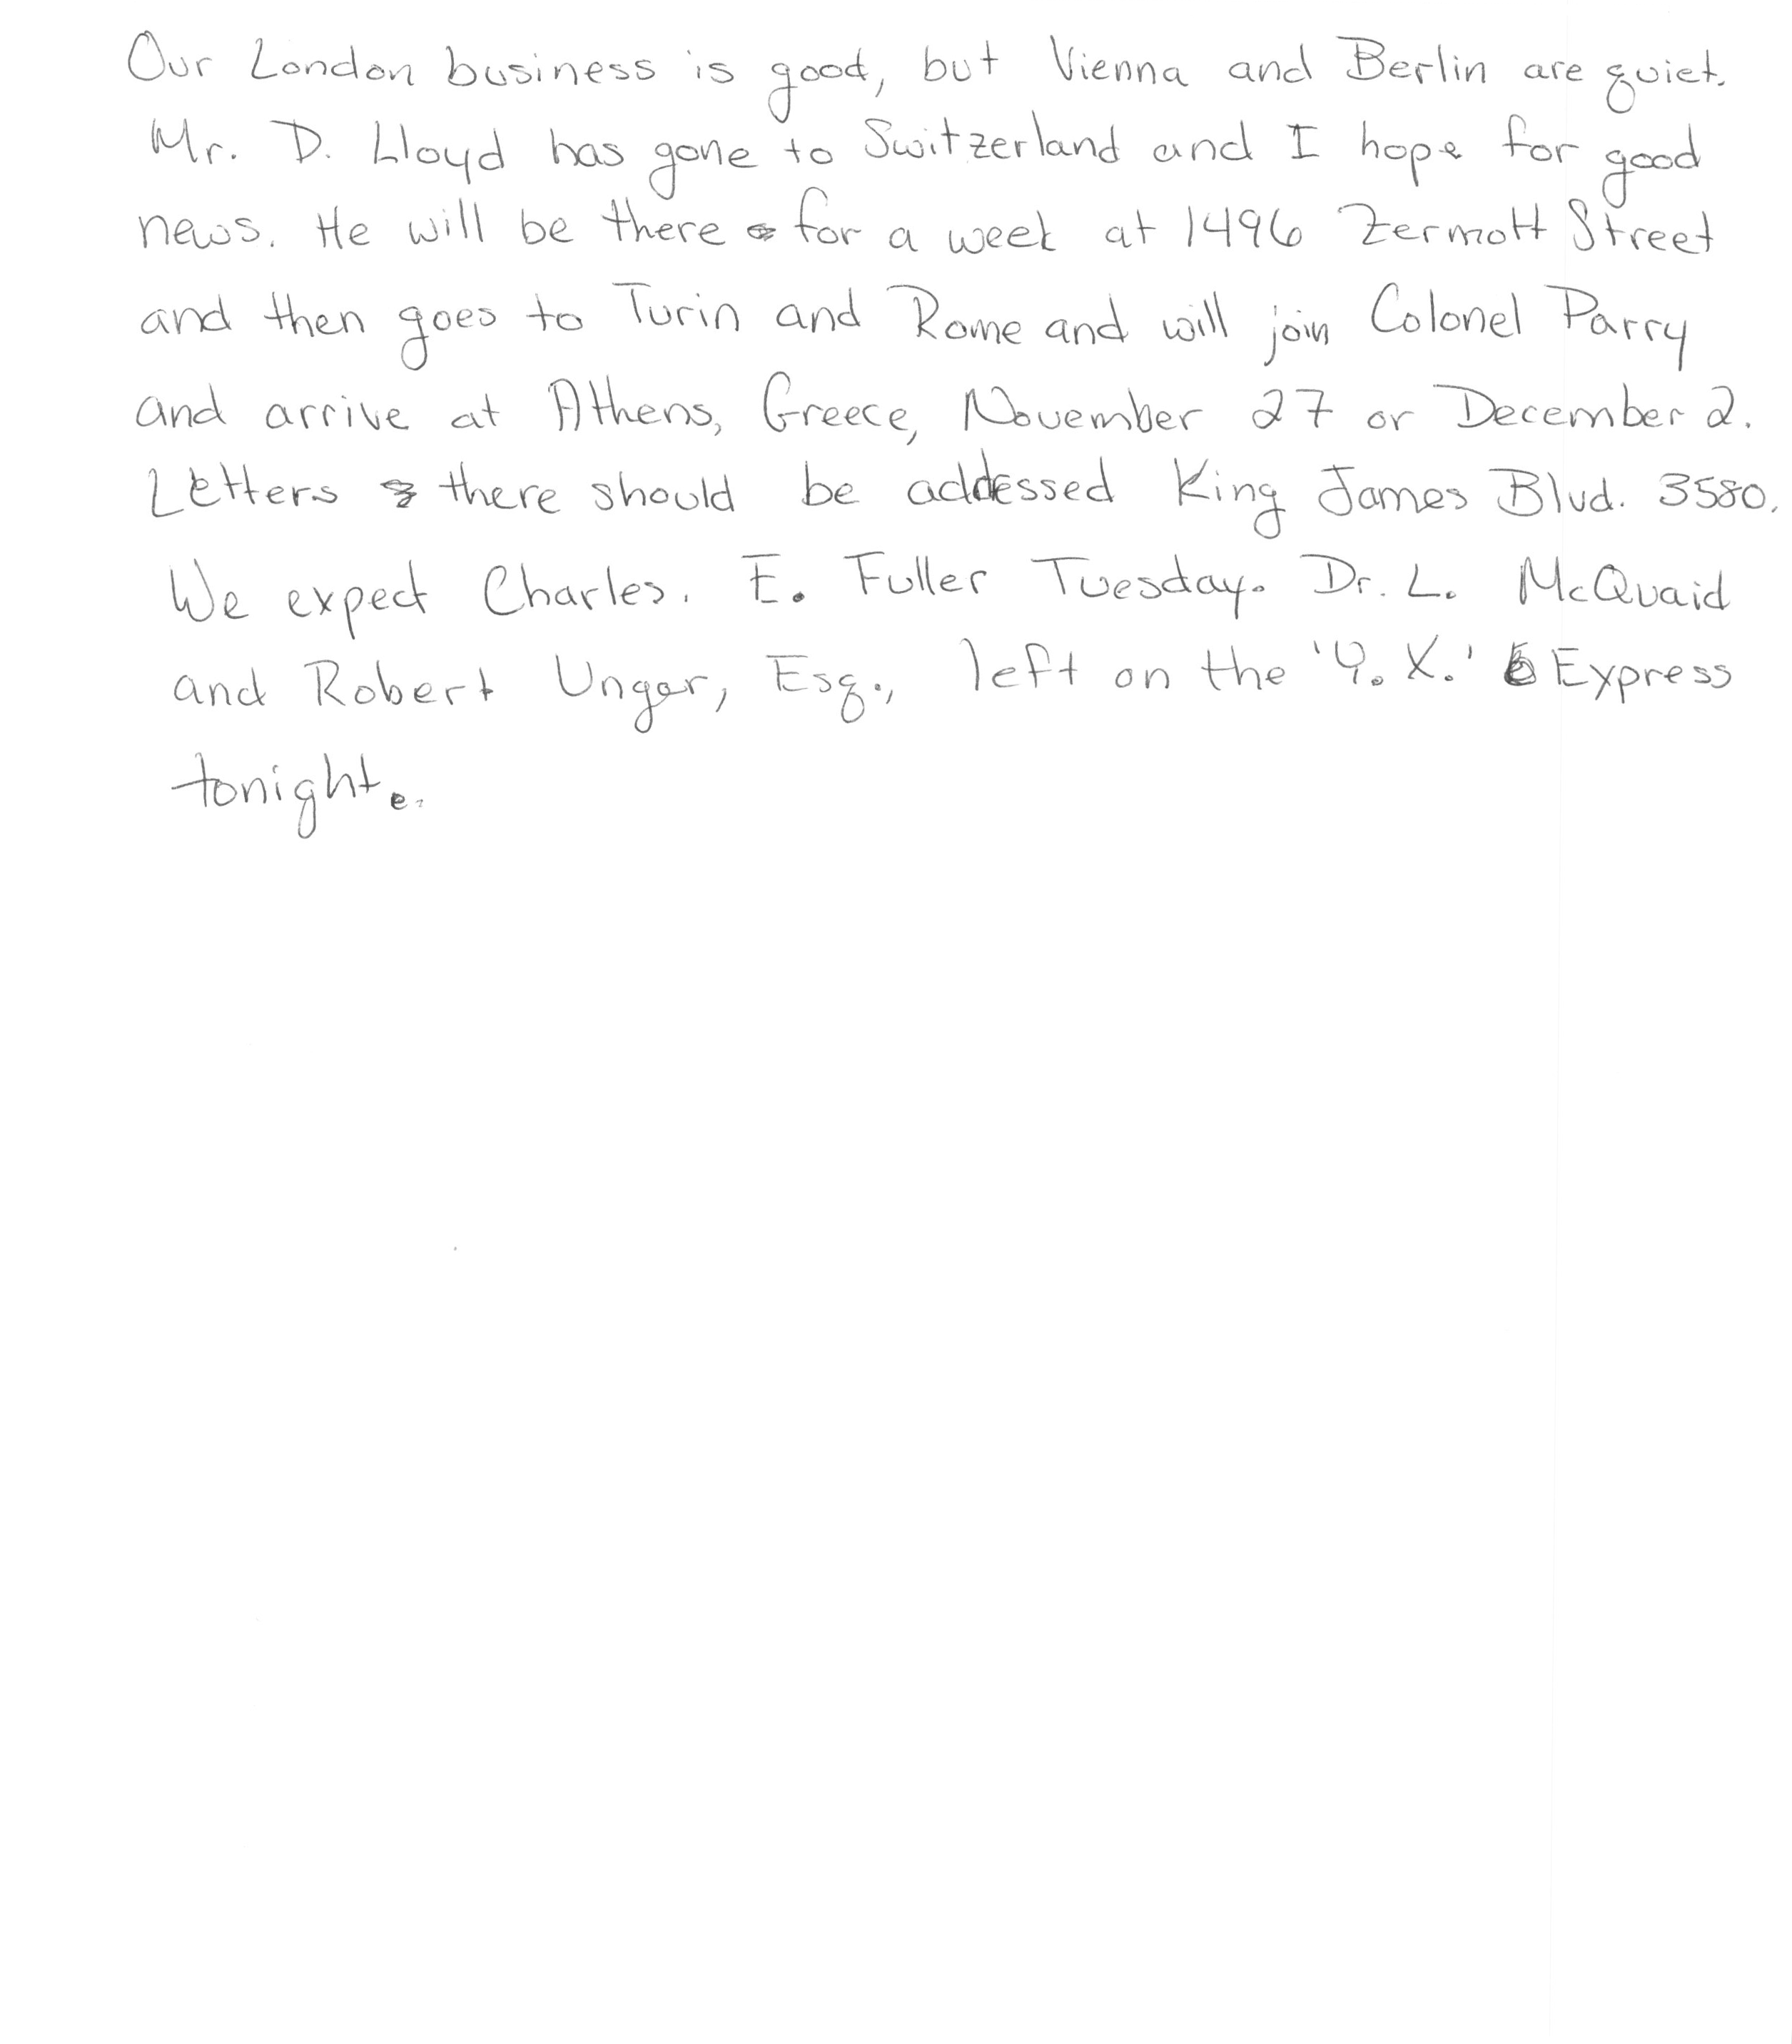 Our London business is good, but Vienna and Berlin are quiet.
Mr. D. Lloyd has gone to Switzerland and I hope for good
news. He will be there for a week at 1496 Zermott Street
and then goes to Turin and Rome and will join Colonel Parry
and arrive at Athens, Greece, November 27 or December 2.
Letters there should be addessed King James Blvd. 3580.
We expect Charles. E. Fuller Tuesday. Dr. L. McQuaid
and Robert Unger, Esq., left on the 'Y. X.' Express
tonight.